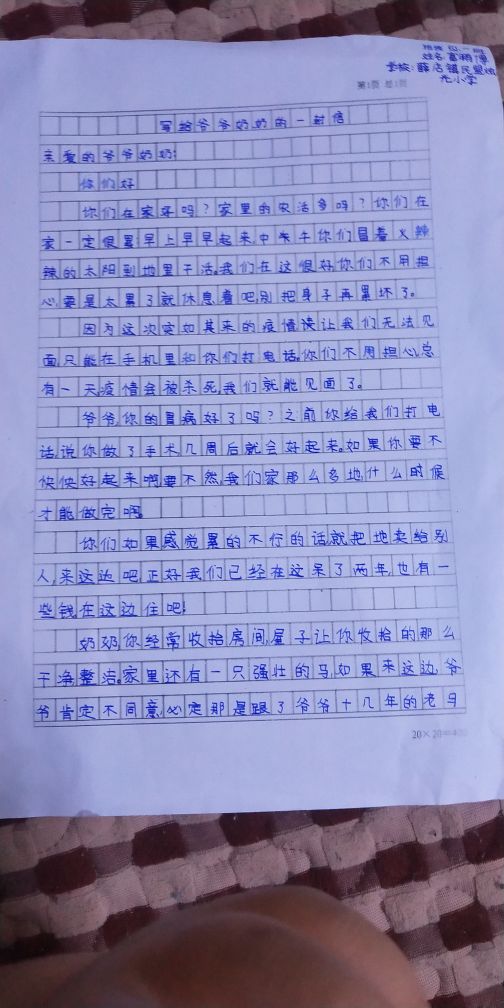 班级 四·一班
姓名:富鹏博
学校:薛店镇民盟烛
光小学
第1页 总1页
写给爷爷奶奶的一封信
亲爱的爷爷奶奶:
你们好
你们在家好吗?家里的农活多吗?你们在
家一定很累早上早早起来,中午你们冒着火辣
辣的太阳到地里干活,我们在这很好你们不用担
心,要是太累了就休息着吧,别把身子再累坏了。
因为这次突如其来的疫情误让我们无法见
面,只能在手机里和你们打电话,你们不用担心,总
有一天,疫情会被杀死,我们就能见面了。
爷爷,你的胃病好了吗?之前你给我们打电
话,说你做了手术,几周后就会好起来。如果你要不
快快好起来啊,要不然,我们家那么多地,什么时候
才能做完啊。
你们如果感觉累的不行的话,就把地卖给别
人,来这边吧,正好我们已经在这呆了两年,也有一
些钱在这边住吧!
奶奶,你经常收拾房间,屋子让你收拾的那么
干净,整洁。家里还有一只强壮的马,如果来这边,爷
爷肯定不同意,必定那是跟了爷爷十几年的老马
20×20=400